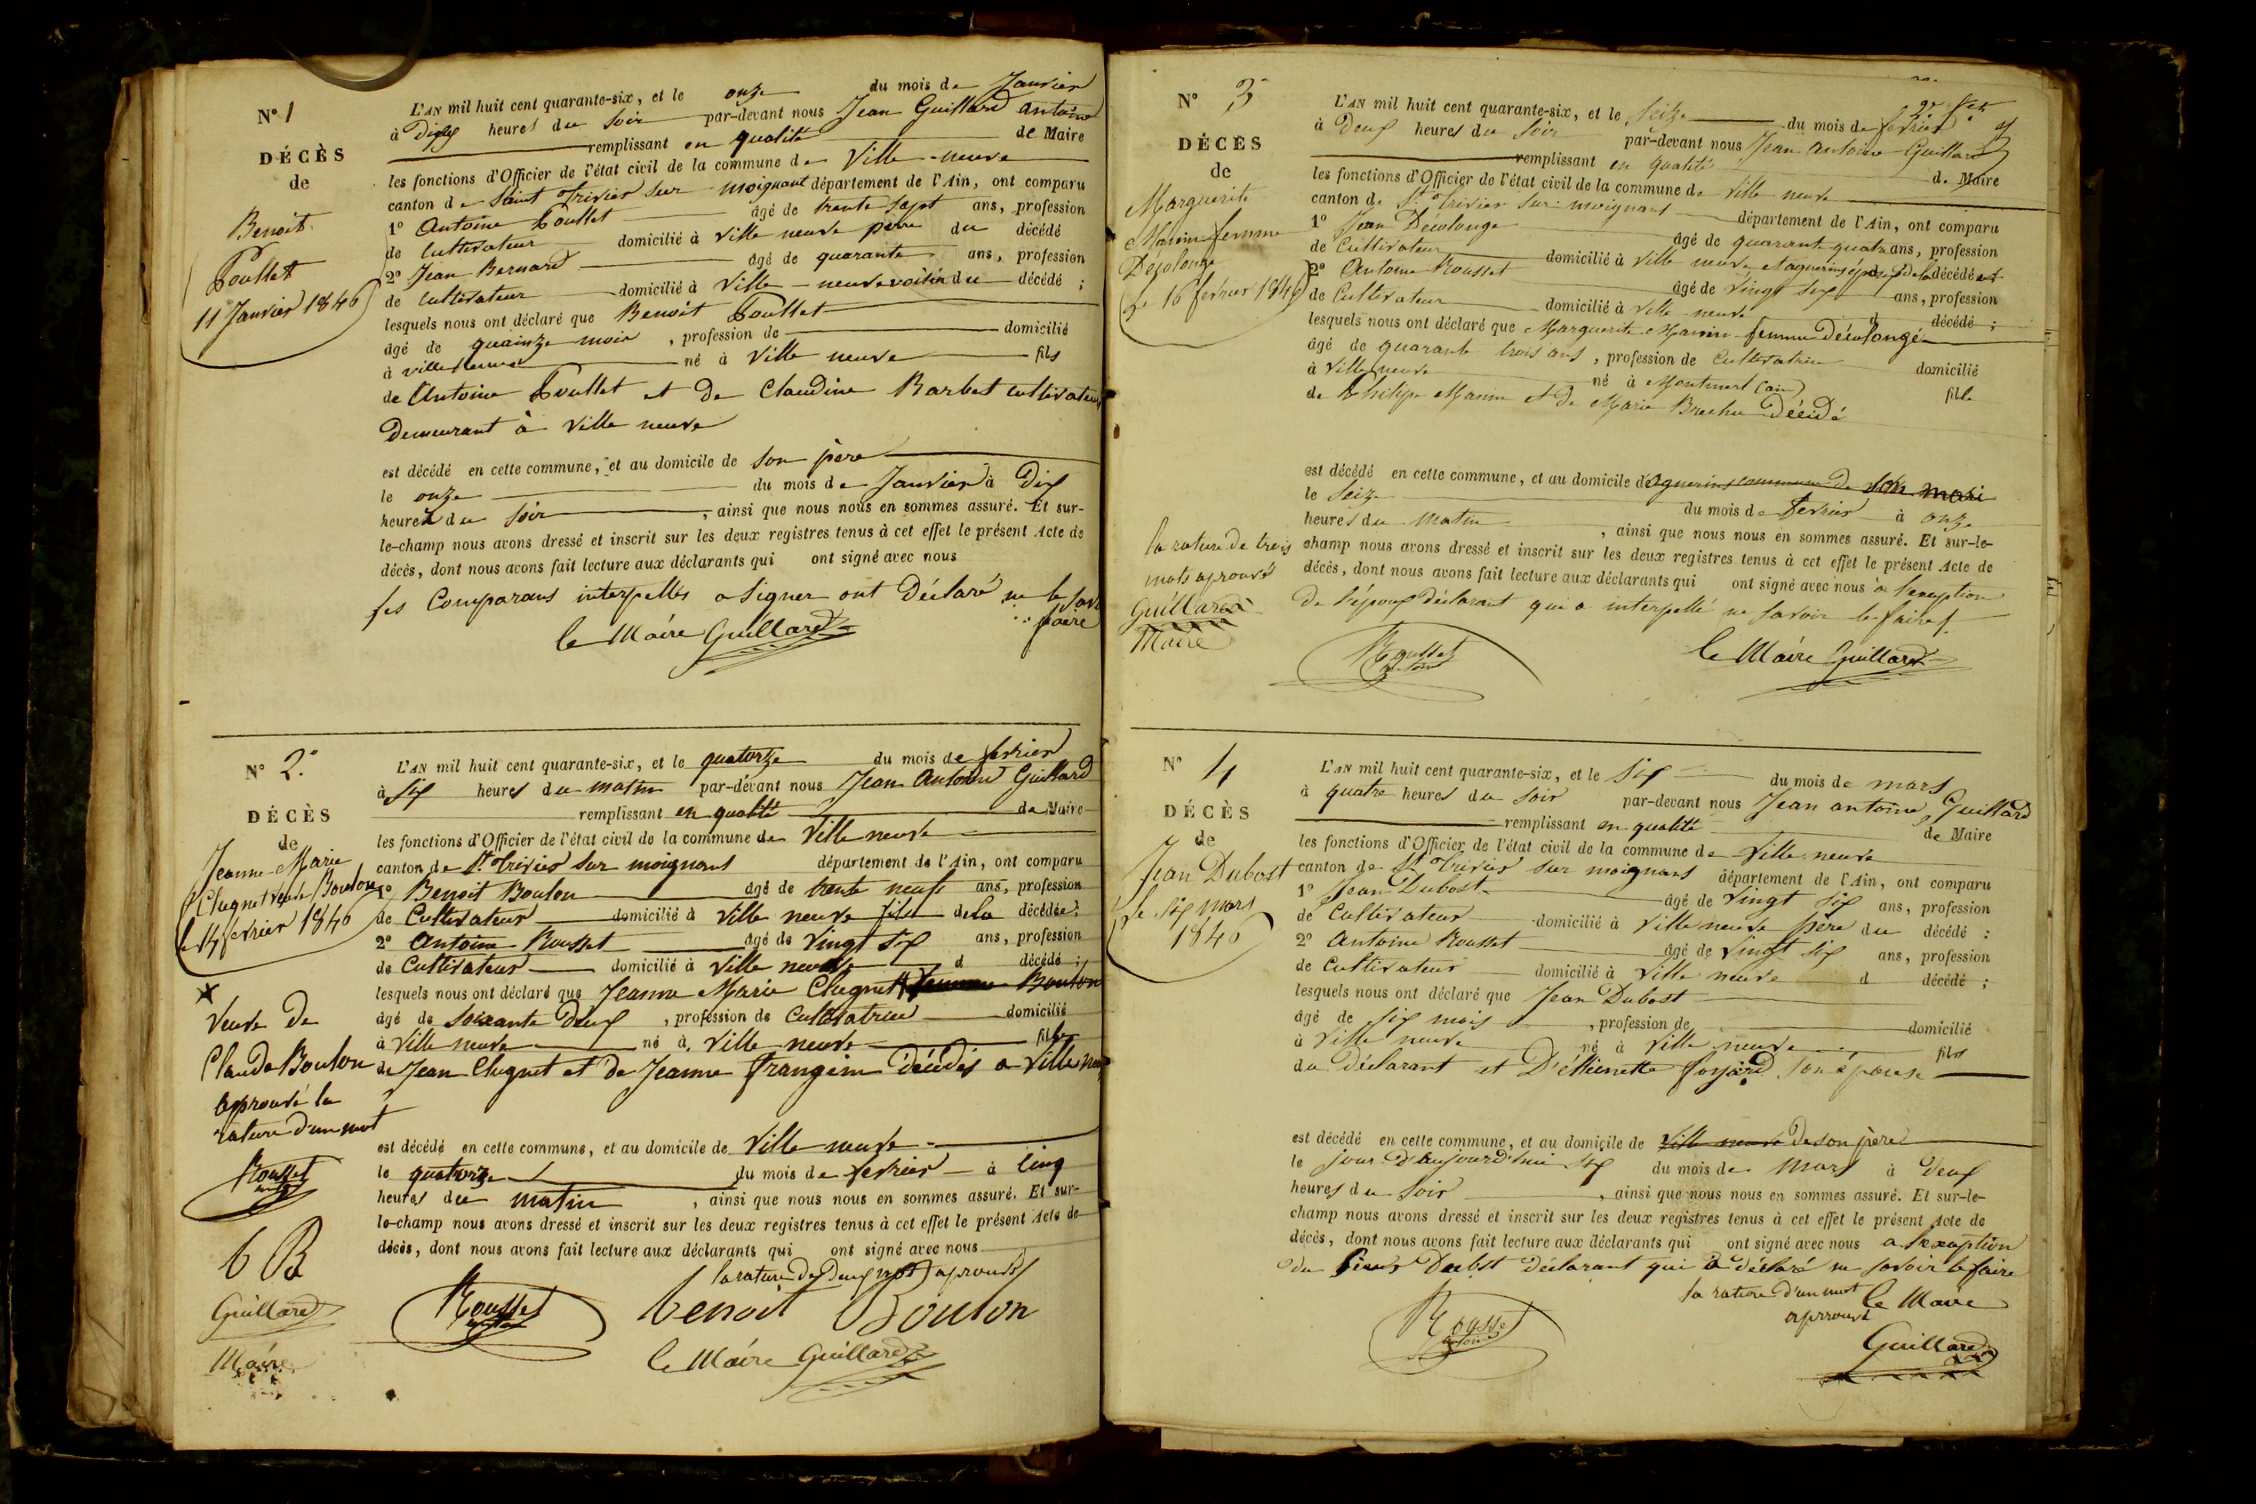 N° 1
DÉCÈS
de
Benoit
Poullet
11 Janvier 1846
L'AN mil huit cent quarante-six, et le onze du mois de Janvier
à Dix heures du Soir par-devant nous Jean Guillard Antoine
remplissant en qualité de Maire
les fonctions d'Officier de l'état civil de la commune de Ville neuve
canton de Saint Trivier sur moignant département de l'Ain, ont comparu
1° Antoine Poullet âgé de trente sept ans, profession
de Cultivateur domicilié à Ville neuve père du décédé
2° Jean Bernard âgé de quarante ans, profession
de Cultivateur domicilié à Ville neuve voisin du décédé ;
lesquels nous ont déclaré que Benoit Poullet
âgé de quainze mois , profession de domicilié
à ville neuve né à Ville neuve fils
de Antoine Poullet et De Claudine Barbet cultivateurs
Demeurant à Ville neuve
est décédé en cette commune, et au domicile de Son père
le onze du mois de Janvier à Dix
heures du Soir , ainsi que nous nous en sommes assuré. Et sur-
le-champ nous avons dressé et inscrit sur les deux registres tenus à cet effet le présent Acte de
décès, dont nous avons fait lecture aux déclarants qui ont signé avec nous
les Comparans interpellés a Signer ont Déclaré ne le savoir
faire
le Maire Guillard
N° 2
DÉCÈS
de
Jeanne Marie
Clugnet veuve Bouton
le 14 février 1846
Veuve De
Claude Bouton
approuvé la
rature d'un mot
Rousset
b B
Guillard
Maire
L'AN mil huit cent quarante-six, et le quatorze du mois de février
à Six heures du matin par-devant nous Jean Antoine Guillard
remplissant en qualité de Maire
les fonctions d'Officier de l'état civil de la commune de Ville neuve
canton de St Trivier sur moignans département de l'Ain, ont comparu
1° Benoit Bouton âgé de trente neuf ans, profession
de Cultivateur domicilié à Ville neuve fils de la décédée ;
2° Antoine Rousset âgé de Vingt Six ans, profession
de Cultivateur domicilié à Ville neuve d décédé ;
lesquels nous ont déclaré que Jeanne Marie Clugnet femme Bouton
âgé de Soixante Deux , profession de Cultivatrice domicilié
à Ville neuve né à Ville neuve fille
de Jean Clugnet et De Jeanne frangein Décédés a Ville neuve
est décédé en cette commune, et au domicile de Ville neuve
le quatorze du mois de fevrier à Cinq
heures du matin , ainsi que nous nous en sommes assuré. Et sur-
le-champ nous avons dressé et inscrit sur les deux registres tenus à cet effet le présent Acte de
décès, dont nous avons fait lecture aux déclarants qui ont signé avec nous
la rature De Deux mots aprouvés
Rousset benoit Bouton
le Maire Guillard
N° 3
DÉCÈS
de
Marguerite
Manin femme
Décolonge
le 16 fevrier 1846
la rature de trois
mots aprouvés
Guillard
Maire
L'AN mil huit cent quarante-six, et le Seize du mois de février
à Deux heures du Soir par-devant nous Jean Antoine Guillard
remplissant en qualité de Maire
les fonctions d'Officier de l'état civil de la commune de Ville neuve
canton de St Trivier sur moignans département de l'Ain, ont comparu
1° Jean Décolonge âgé de quarante quatre ans, profession
de Cultivateur domicilié à Ville neuve époux de la décédée
2° Antoine Rousset âgé de Vingt Six ans, profession
de Cultivateur domicilié à Ville neuve d décédé ;
lesquels nous ont déclaré que Marguerite Manin femme Décolonge
âgé de quarante trois ans , profession de Cultivatrice domicilié
à Ville neuve né à Montmerl (ain) fille
de Philipe Manin et De Marie Brechu Décédé
est décédé en cette commune, et au domicile de son mari
le Seize du mois de fevrier à onze
heures du Matin , ainsi que nous nous en sommes assuré. Et sur-le-
champ nous avons dressé et inscrit sur les deux registres tenus à cet effet le présent Acte de
décès, dont nous avons fait lecture aux déclarants qui ont signé avec nous à l'exeption
De l'époux Déclarant qui a interpellé ne savoir le faire
Rousset le Maire Guillard
N° 4
DÉCÈS
de
Jean Dubost
le Six mars
1846
L'AN mil huit cent quarante-six, et le Six du mois de mars
à quatre heures du Soir par-devant nous Jean antoine Guillard
remplissant en qualité de Maire
les fonctions d'Officier de l'état civil de la commune de Ville neuve
canton de St Trivier sur moignans département de l'Ain, ont comparu
1° Jean Dubost âgé de Vingt Six ans, profession
de Cultivateur domicilié à Ville neuve père du décédé ;
2° Antoine Rousset âgé de Vingt Six ans, profession
de Cultivateur domicilié à Ville neuve d décédé ;
lesquels nous ont déclaré que Jean Dubost
âgé de Six mois , profession de domicilié
à Ville neuve né à Ville neuve fils
du Déclarant et D'étiennette foyard Son épouse
est décédé en cette commune, et au domicile de Ville neuve De son père
le jour D'aujourd'hui Six du mois de Mars à Deux
heures du Soir , ainsi que nous nous en sommes assuré. Et sur-le-
champ nous avons dressé et inscrit sur les deux registres tenus à cet effet le présent Acte de
décès, dont nous avons fait lecture aux déclarants qui ont signé avec nous a l'exeption
du Sieur Dubost Declarant qui a déclaré ne savoir le faire
la rature d'un mot le Maire
aprrouvé
Rousset Guillard